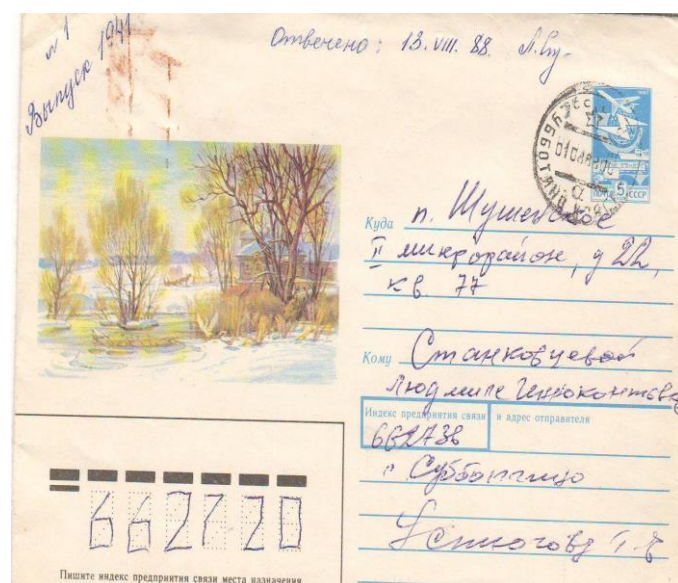 №1
Выпуск 1941
Отвечено: 13. VIII. 88.
5
СССР
Куда п. Шушенское
II микрорайон, д 22,
кв 77
Кому Станковцевой
Людмиле
Индекс предприятия связи и адрес отправителя
662736
п Субботино
662720
Пишите индекс предприятия связи места назначения